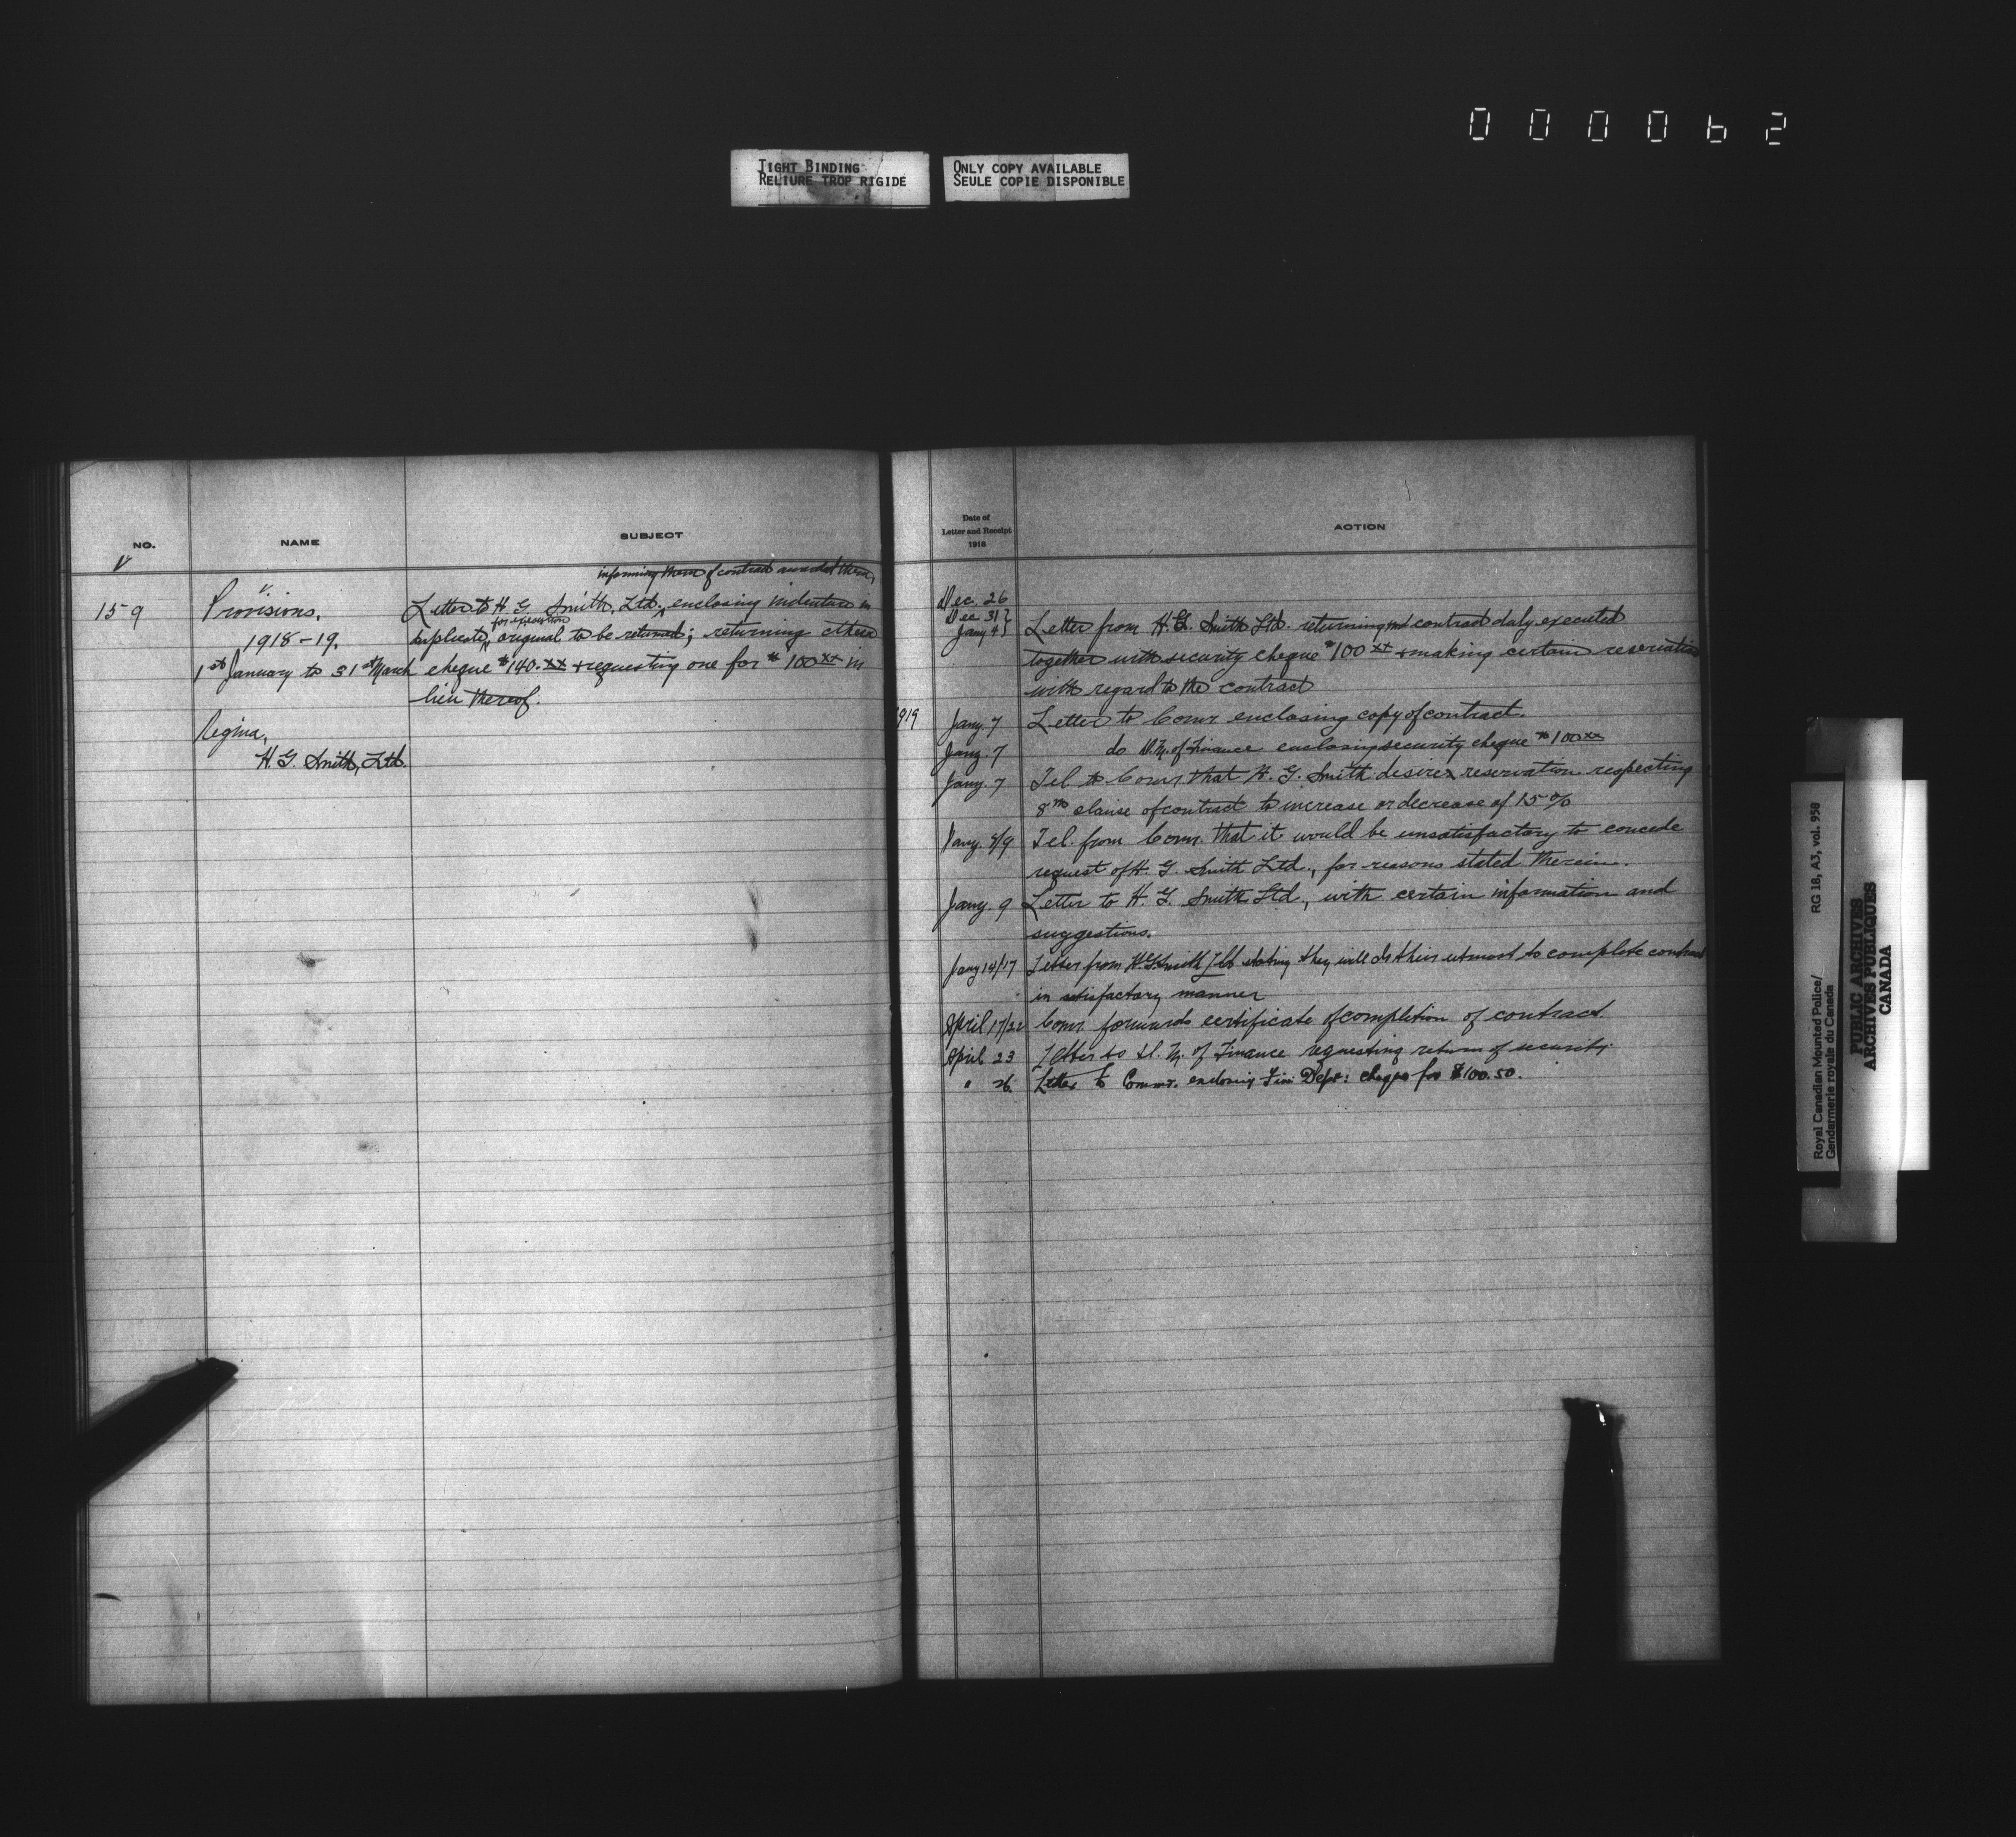 000062
TIGHT BINDING
RELIURE TROP RIGIDE
ONLY COPY AVAILABLE
SEULE COPIE DISPONIBLE
NO.
NAME
SUBJECT
V
159
Provisions.
1918-19.
1st January to 31st March
Regina,
H. G. Smith, Ltd.
informing them of contract awarded them,
Letter to H. G. Smith, Ltd., enclosing indenture in
for execution
duplicate, original to be returned; returning their
cheque $140.xx + requesting one for $100xx in
lieu thereof.
Date of
Letter and Receipt
1918
ACTION
Dec. 26
Dec 31}
Jany 4}
Letter from H. G. Smith Ltd. returning contract duly executed
together with security cheque $100xx + making certain reservation
with regard to the contract
1919
Jany. 7 Letter to Comr enclosing copy of contract.
Jany. 7 do D.M. of Finance enclosing security cheque $100xx
Jany. 7 Tel. to Comr that H. G. Smith desires reservation respecting
8th clause of contract to increase or decrease of 15%
Jany. 8/9 Tel. from Comr. that it would be unsatisfactory to concede
request of H. G. Smith Ltd., for reasons stated therein.
Jany. 9 Letter to H. G. Smith Ltd., with certain information and
suggestions.
Jany 14/17 Letter from H.G. Smith Ltd stating they will do their utmost to complete contract
in satisfactory manner
April 17/22 Comr. forwards certificate of completion of contract.
April 23 Letter to D. M. of Finance requesting return of security.
" 26. Letter to Commr. enclosing Fin: Dept: cheque for $100.50.
Royal Canadian Mounted Police/
Gendarmerie royale du Canada
RG 18, A3, vol. 958
PUBLIC ARCHIVES
ARCHIVES PUBLIQUES
CANADA